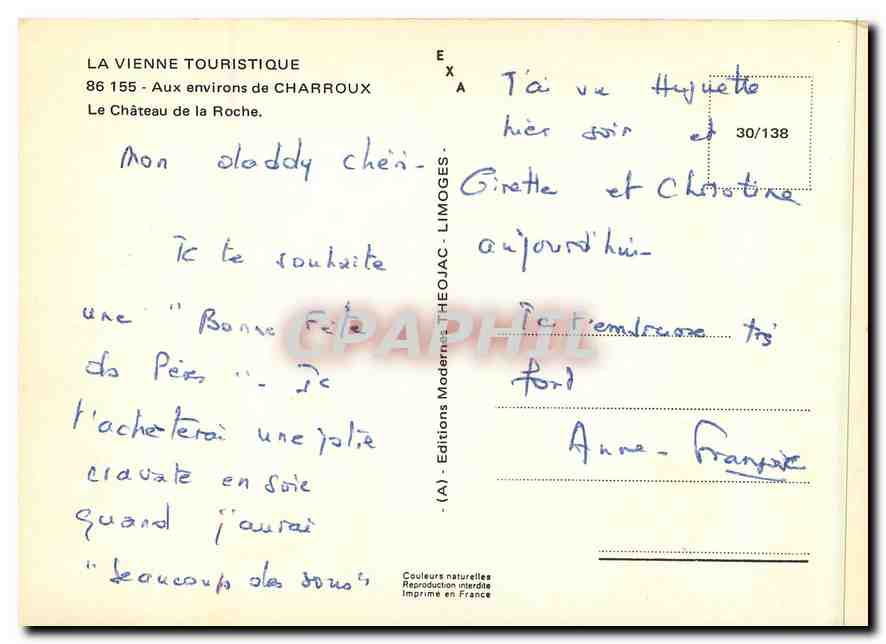 LA VIENNE TOURISTIQUE
86 155 - Aux environs de CHARROUX
Le Château de la Roche.
Mon daddy chéri -
Je te souhaite
une "Bonne Fête
des Pères" - Je
t'acheterai une jolie
cravate en soie
quand j'aurai
"beaucoup des sous"
EXA
- (A) - Editions Modernes THEOJAC - LIMOGES -
CPAPHIL
Couleurs naturelles
Reproduction interdite
Imprimé en France
30/138
J'ai vu Huguette
hier soir et
Ginette et Christine
aujourd'hui -
Je t'embrasse très
fort
Anne-Françoise